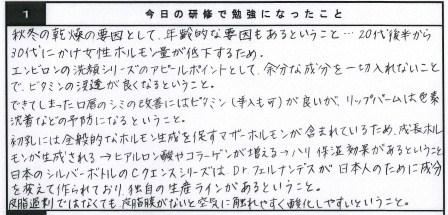 1 今日の研修で勉強になったこと
秋冬の乾燥の要因として、年齢的な要因もあるということ…20代後半から
30代にかけ女性ホルモン量が低下するため。
エンビロンの洗顔シリーズのアピールポイントとして、余分な成分を一切入れないこと
で、ビタミンの浸透が良くなるということ。
できてしまった口唇のシミの改善にはビタミン(手入も可)が良いが、リップバームは色素
沈着などの予防になるということ。
初乳には全般的なホルモン生成を促すマザーホルモンが含まれているため、成長ホル
モンが生成される→ヒアルロン酸やコラーゲンが増える→ハリ保湿効果があるということ
日本のシルバーボトルのCクエンスシリーズは、Dr.フェルナンデスが日本人のために成分
を変えて作られており、独自の生産ラインがあるということ。
皮脂過剰ではなくても皮脂膜がないと空気に触れやすく酸化しやすいということ。